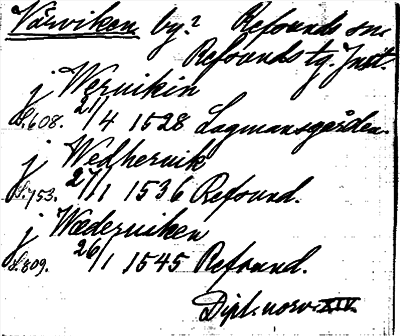 Värviken by? Refsunds sn.
Refsunds tg. Jmtl.
j Wervikin
S. 608. 21/4 1528 Lagmansgården.
j Wedhervik
S. 753. 27/1 1536 Refsund.
j Wæderviken
S. 809. 26/1 1545 Refsund.
Dipl. norv. XIV.